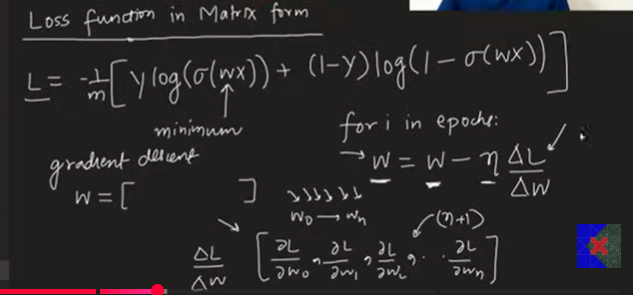 Loss function in Matrix form
L = -1/m [ y log(σ(wx)) + (1-y) log(1 - σ(wx)) ]
minimum
gradient descent
w = [ ]
for i in epochs:
→ w = w - η ΔL/ΔW
w₀ → wₙ
(n+1)
ΔL/ΔW [ ∂L/∂w₀, ∂L/∂w₁, ∂L/∂w₂, ... ∂L/∂wₙ ]